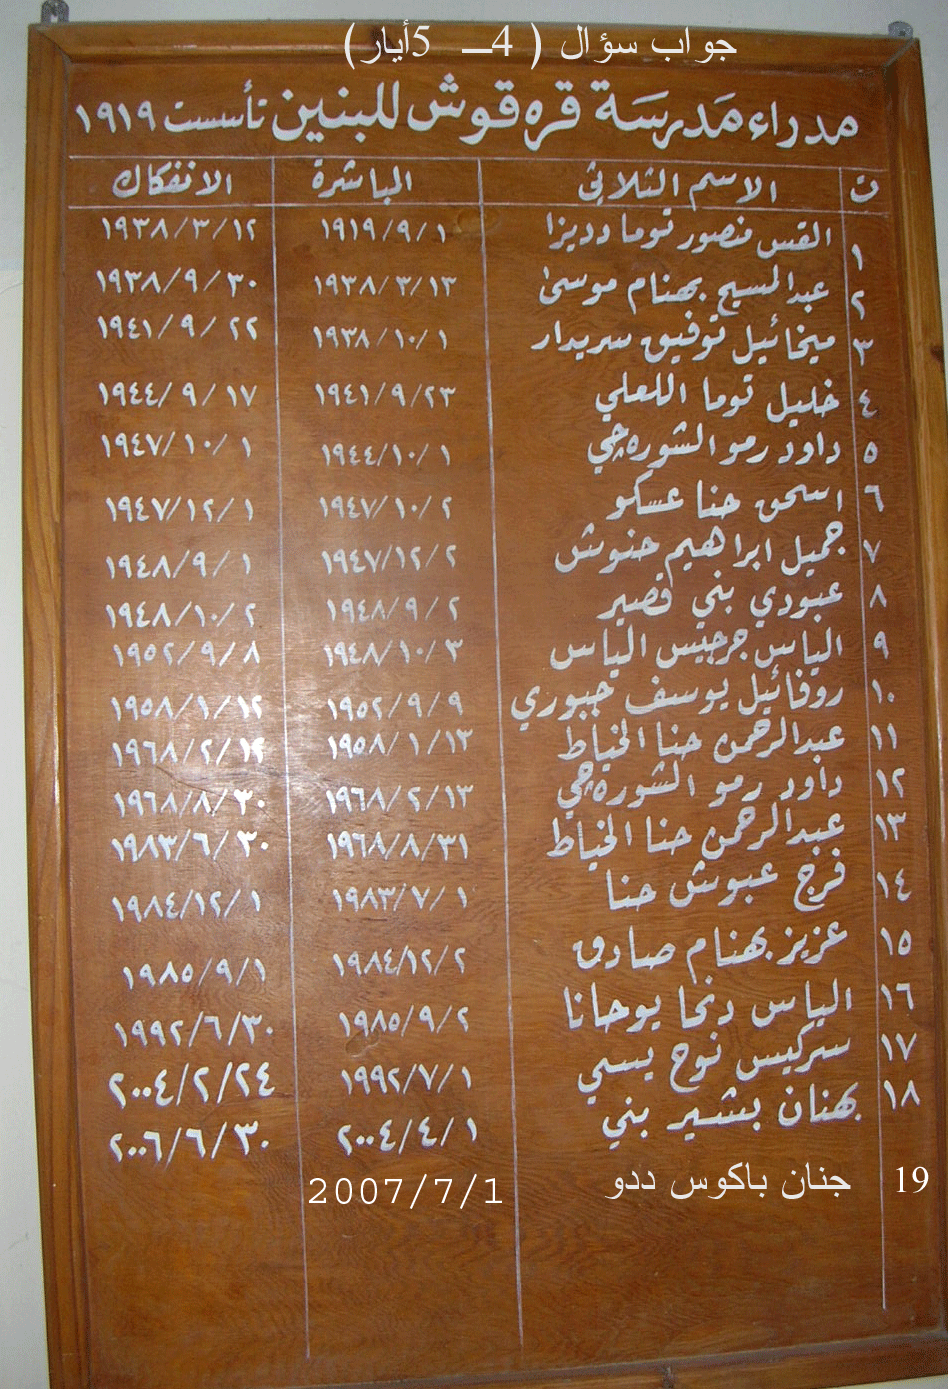 جواب سؤال ( 4ــ 5أيار)
مدراء مَدرسَة قره قوش للبنين تأسست ١٩١٩
ت الاسم الثلاثي المباشرة الانفكاك
١ القس منصور توما دديزا ١٩١٩/٩/١ ١٩٣٨/٣/١٢
٢ عبدالمسيح بهنام موسىٰ ١٩٣٨/٣/١٣ ١٩٣٨/٩/٣٠
٣ ميخائيل توفيق سريدار ١٩٣٨/١٠/١ ١٩٤١/٩/٢٢
٤ خليل توما اللعلي ١٩٤١/٩/٢٣ ١٩٤٤/٩/١٧
٥ داود رمو الشوره چي ١٩٤٤/١٠/١ ١٩٤٧/١٠/١
٦ اسحق حنا عسكو ١٩٤٧/١٠/٢ ١٩٤٧/١٢/١
٧ جميل ابراهيم حنوش ١٩٤٧/١٢/٢ ١٩٤٨/٩/١
٨ عبودي بني قصير ١٩٤٨/٩/٢ ١٩٤٨/١٠/٢
٩ الياس جرجيس الياس ١٩٤٨/١٠/٣ ١٩٥٢/٩/٨
١٠ روفائيل يوسف حبوري ١٩٥٢/٩/٩ ١٩٥٨/١/١٢
١١ عبدالرحمن حنا الخياط ١٩٥٨/١/١٣ ١٩٦٨/٢/١٢
١٢ داود رمو الشوره چي ١٩٦٨/٢/١٣ ١٩٦٨/٨/٣٠
١٣ عبدالرحمن حنا الخياط ١٩٦٨/٨/٣١ ١٩٨٣/٦/٣٠
١٤ فرج عبوش حنا ١٩٨٣/٧/١ ١٩٨٤/١٢/١
١٥ عزيز بهنام صادق ١٩٨٤/١٢/٢ ١٩٨٥/٩/١
١٦ الياس دنحا يوحانا ١٩٨٥/٩/٢ ١٩٩٢/٦/٣٠
١٧ سركيس نوح يسي ١٩٩٢/٧/١ ٢٠٠٤/٢/٢٤
١٨ بهنان بشير بني ٢٠٠٤/٤/١ ٢٠٠٦/٦/٣٠
19 جنان باكوس ددو 2007/7/1